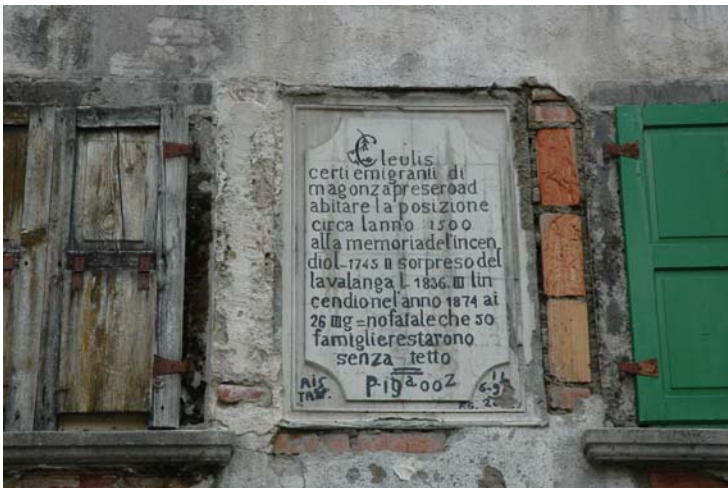 Cleulis
certi emigranti di
magonza presero ad
abitare la posizione
circa lanno 1500
alla memoria del'incen
dio I-1745 II sorpreso del
lavalanga I. 1836. III lin
cendio nel'anno 1874 ai
26 mg=no fatale che 50
famiglie restarono
senza tetto